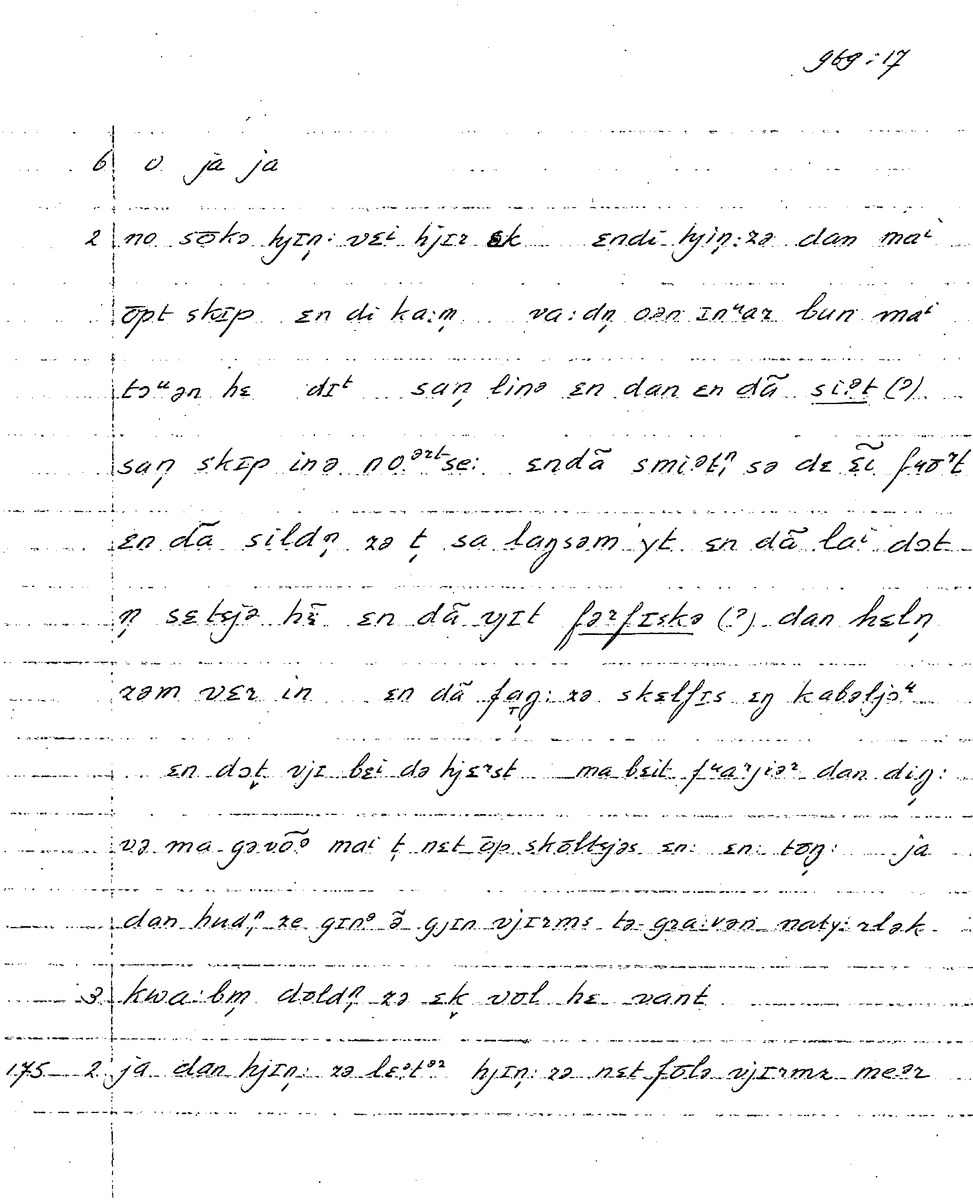 969:17
6 o ja ja
2 no sōkə hjɪn̩: vɛi hjɪr ɛk ɛndi hjin̩:zə dan maⁱ
ōpt skɪp ɛn di ka:m̩ va:dn̩ oən ɪnᵘar bun maⁱ
tɔᵘən hɛ dɪt san̩ linə ɛn dan ɛn dã siɂt (?)
san̩ skɪp inə noᵊʳᵗse: ɛndã smiəti̩ⁿ sə dɛ ɛ̃i fuōʳt
ɛn dã sildn̩ zə t̩ sa laŋsəm yt ɛn dã laⁱ dɔt
n̩ sɛtsjə hɛ̃ ɛn dã yɪt fərfɪskə (?) dan hɛln̩
rəm vɛr in ɛn dã faŋ: zə skɛlfɪs ɛŋ kabəljɔᵘ
ɛn dɔt̬ vjɪ bɛi də hjɛrst ma bɛit fᵘaʳjiəʳ dan diŋ̩:
və ma gəvõᵊ maⁱ t̩ nɛt ōp skōltsjəs ɛn: ɛn: tōŋ̩: ja
dan hudn̩ ze gɪnᵊ ə̃ gjɪn vjɪrms tə gra:vən naty:rlək
3 kwa:bm̩ dōldn̩ zə ɛk̬ vōl hɛ vant
175 2 ja dan hjɪn̩: zə lɛᵊtᵊʳ hjɪn̩: zə nɛt fōlə vjɪrmz meər